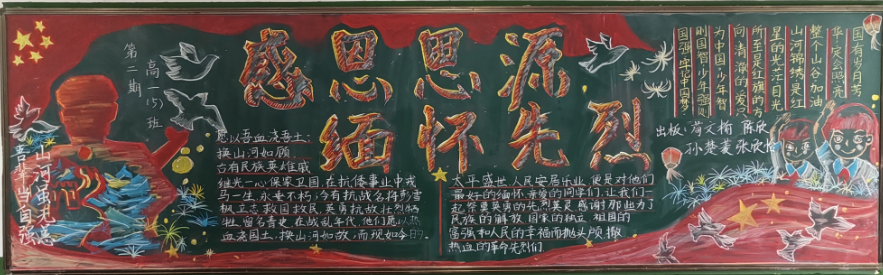 感恩思源
缅怀先烈
第二期
高一(5)班
山河虽无恙
吾辈当自强
愿以吾血浇吾土
换山河如愿
古有民族英雄戚
继光一心保家卫国,在抗倭事业中戎
马一生,永垂不朽,今有抗战名将彭雪
枫立志救国救民,英勇抗敌壮烈牺
牲,留名青史,在战乱年代,他们愿以热
血浇国土,换山河如故,而现如今的
太平盛世,人民安居乐业,便是对他们
最好的缅怀,亲爱的同学们,让我们一
起
先烈英灵,感谢那些为了
民族的解放,国家的独立,祖国的
富强和人民的幸福而抛头颅,撒
热血的革命先烈们
国有岁月苦
华灯会照亮
整个山谷加油
山河锦绣是红
星的光芒,目光
所至是红旗的方
向,清澈的爱只
为中国,少年智
则国智,少年强则
国强
出板:
陈欣
孙楚菱